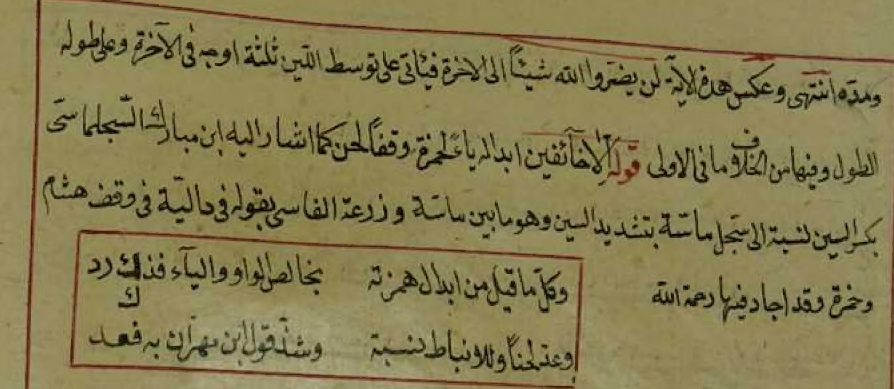 ومده انتهى وعكس هذه الآية لن يضروا الله شيئاً الى الاخرة فيأتى على توسط اللين ثلثة اوجه فى الآخرة وعلى طوله
الطول وفيها من الخلاف ما فى الاولى قوله الاخآئفين ابداله ياء لحمزة وقفاً لحن كما اشار اليه ابن مبارك السجلماسى
بكسر السين لنسبة الى سجلماسة بتشديد السين وهو ما بين ماسة و زرعة الفاسى بقوله فى دالية فى وقف هشام
وحمزة وقد اجاد فيها رحمة الله
وكل ما قيل من ابدال همزته بخالص الواو والياء فذلك رد
وعد لحناً وللانباط نسبة وشذ قول ابن مهران به فعد